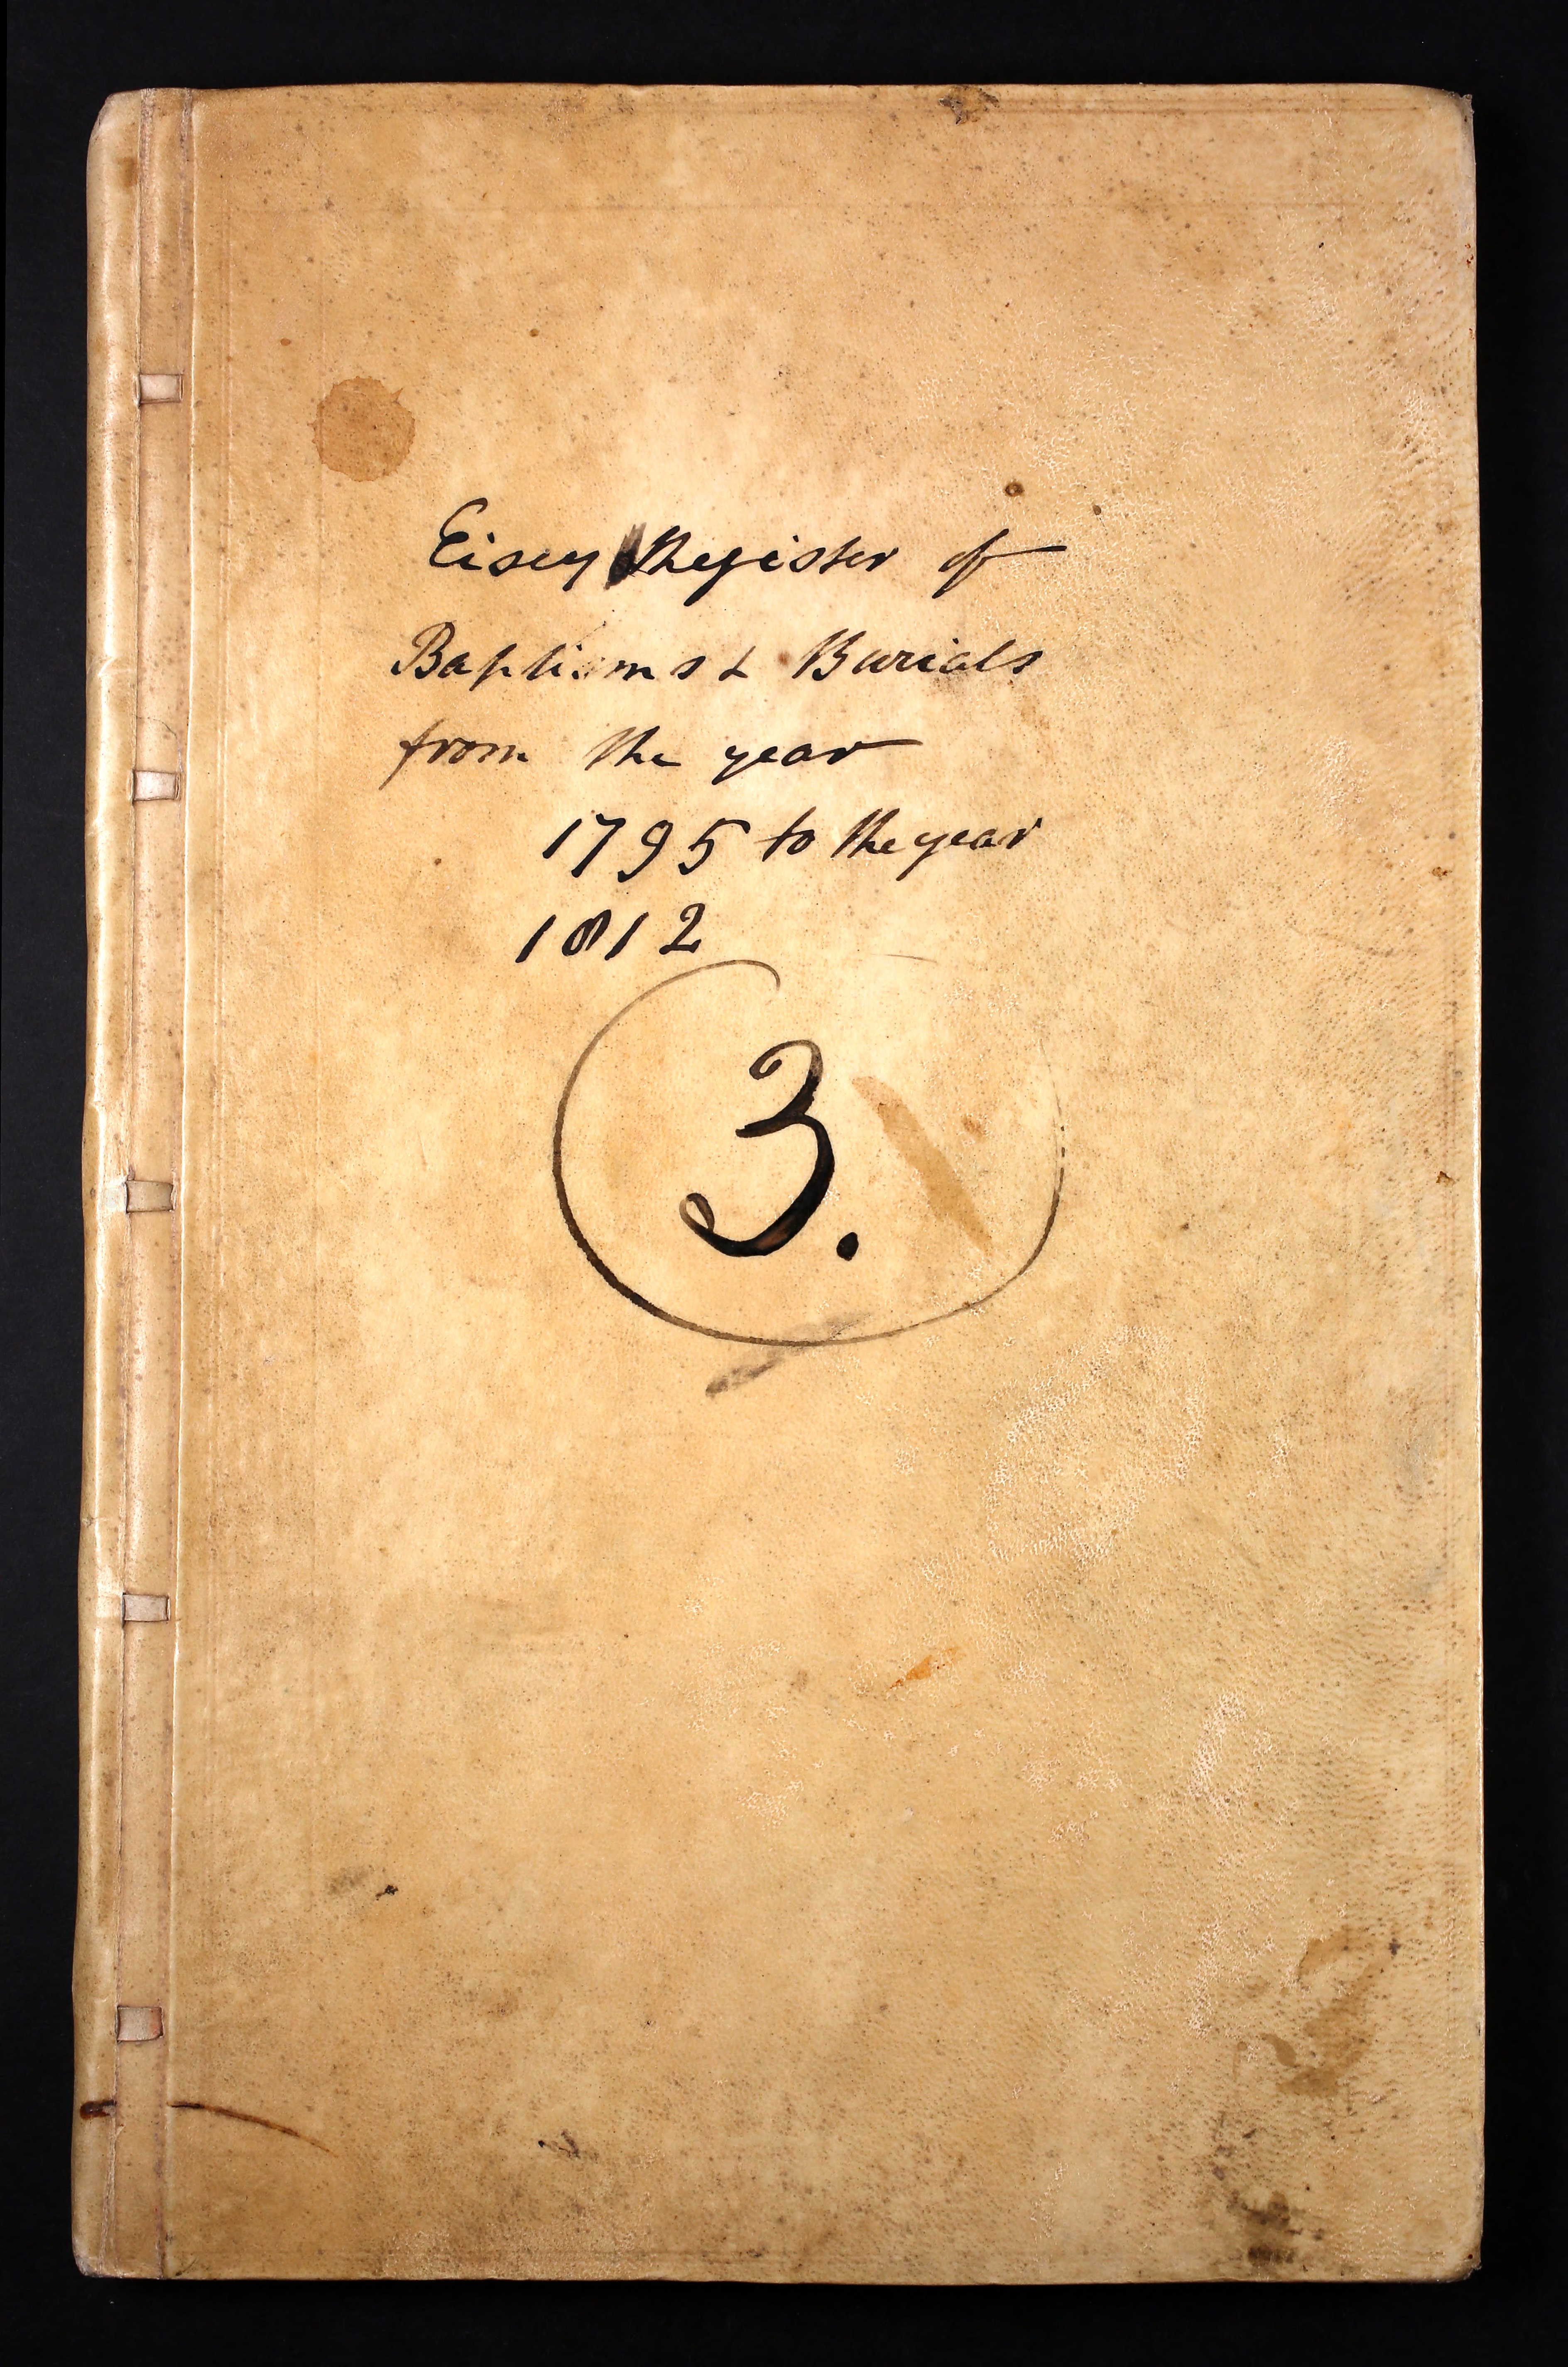 Eisey Register of
Baptisms & Burials
from the year
1795 to the year
1812
3.